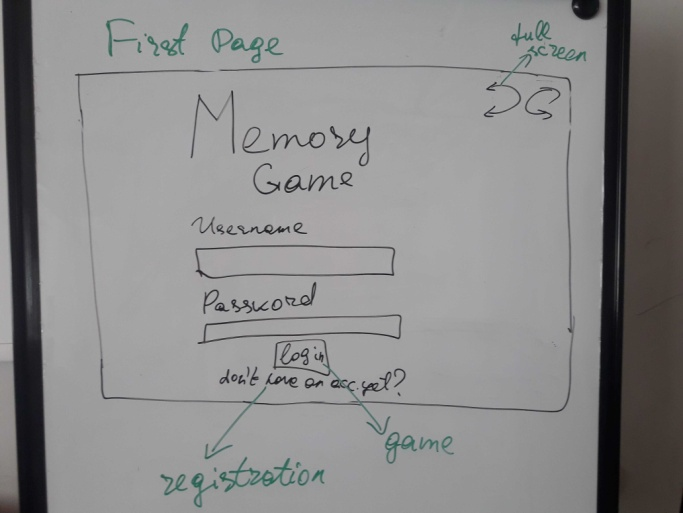 First Page
full
screen
Memory
Game
Username
Password
login
don't have an acc. yet?
game
registration